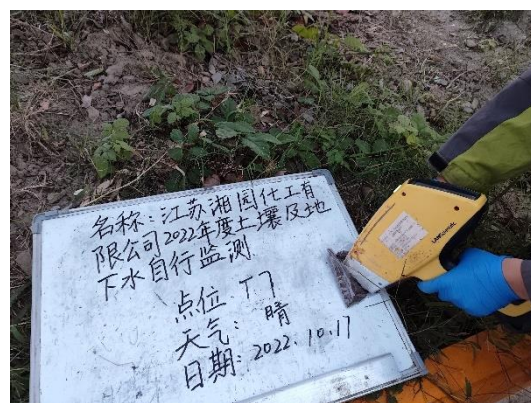 名称:江苏湘园化工有
限公司2022年度土壤及地
下水自行监测
点位 T7
天气: 晴
日期: 2022.10.17